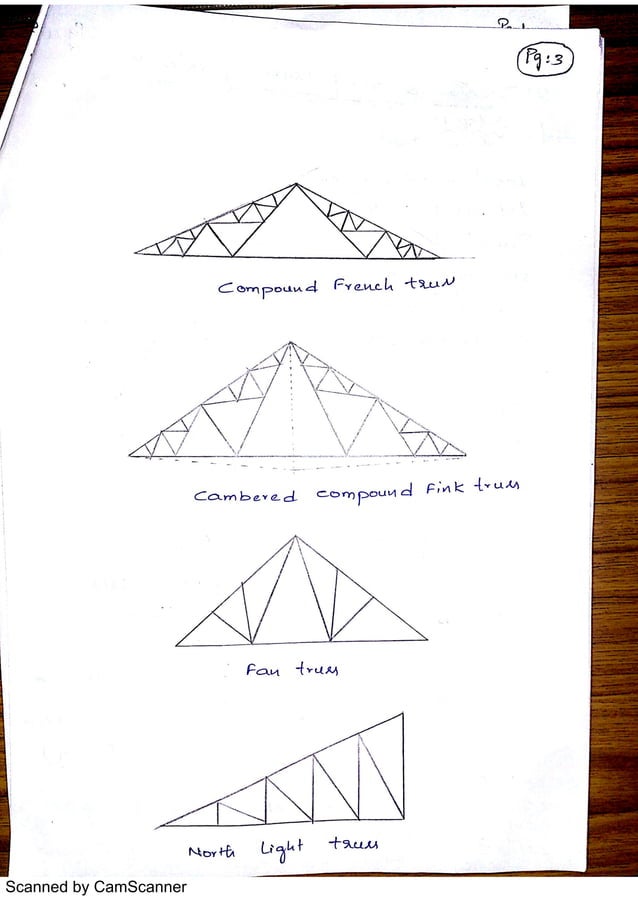 Pg:3
Compound French truss
Cambered compound Fink truss
Fan truss
North Light truss
Scanned by CamScanner